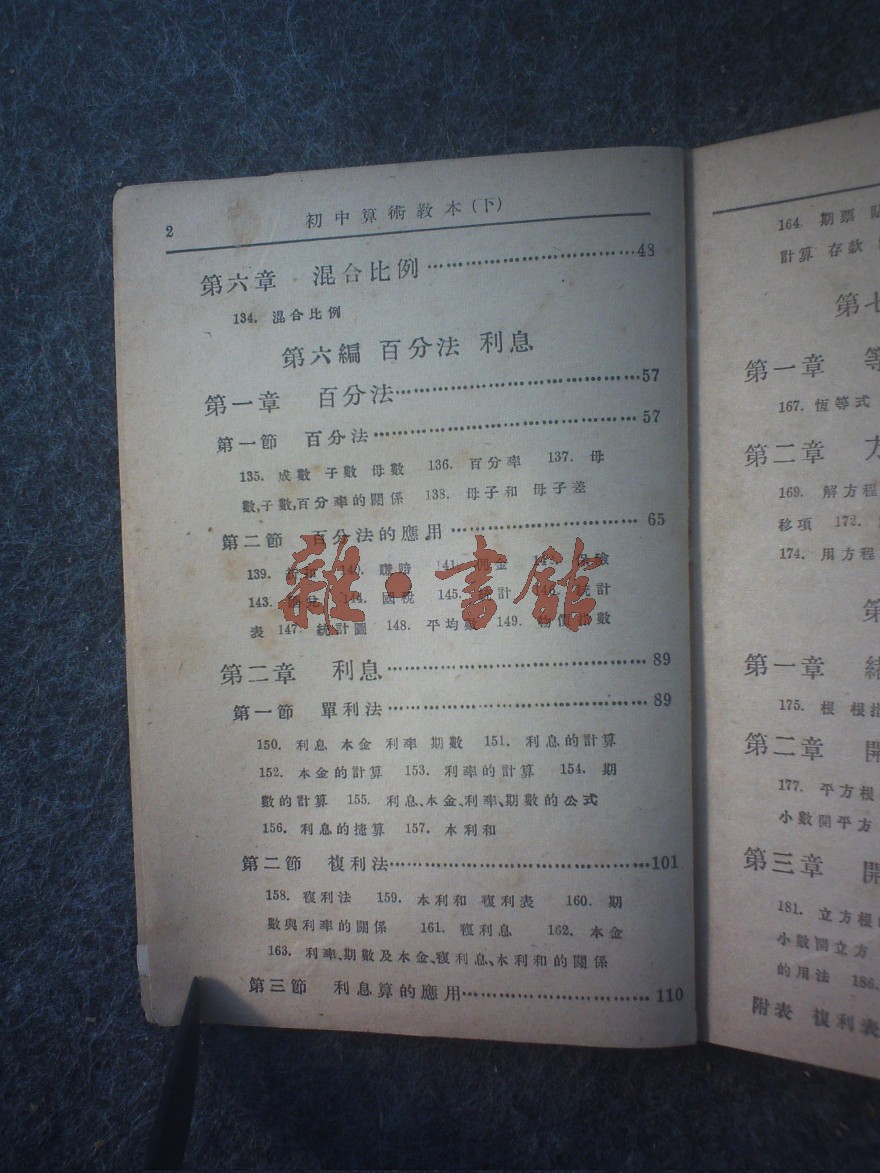 2 初中算術教本(下)
第六章 混合比例 48
134. 混合比例
第六編 百分法 利息
第一章 百分法 57
第一節 百分法 57
135. 成數 子數 母數 136. 百分率 137. 母
數,子數,百分率的關係 138. 母子和 母子差
第二節 百分法的應用 65
139. 140. 賺賠 141. 佣金 142. 保險
143. 144. 國稅 145. 統計 146. 統計
表 147. 統計圖 148. 平均數 149. 物價指數
雜·書館
第二章 利息 89
第一節 單利法 89
150. 利息 本金 利率 期數 151. 利息的計算
152. 本金的計算 153. 利率的計算 154. 期
數的計算 155. 利息、本金、利率、期數的公式
156. 利息的捷算 157. 本利和
第二節 複利法 101
158. 複利法 159. 本利和 複利表 160. 期
數與利率的關係 161. 複利息 162. 本金
163. 利率、期數及本金、複利息、本利和的關係
第三節 利息算的應用 110
164. 期票
計算 存款
第七
第一章
167. 恆等式
第二章
169. 解方程
移項 172.
174. 用方程
第
第一章 緒
175. 根 根指
第二章 開
177. 平方根
小數開平方
第三章 開
181. 立方根
小數開立方
的用法 186.
附表 複利表